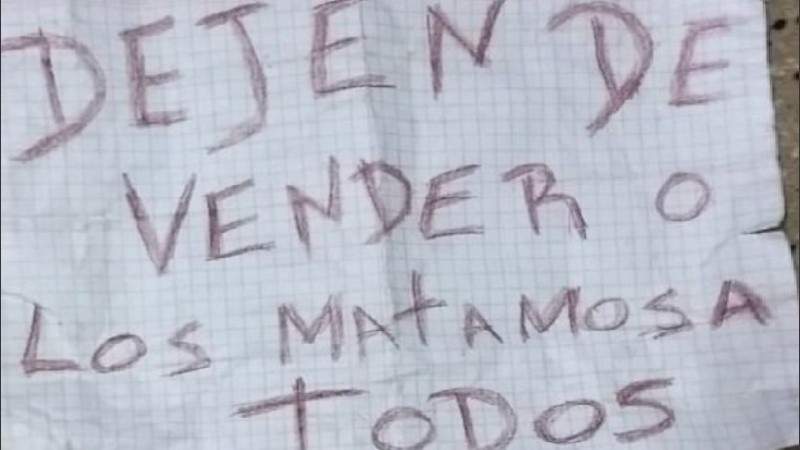 DEJEN DE
VENDER O
LOS MATAMOSA
TODOS